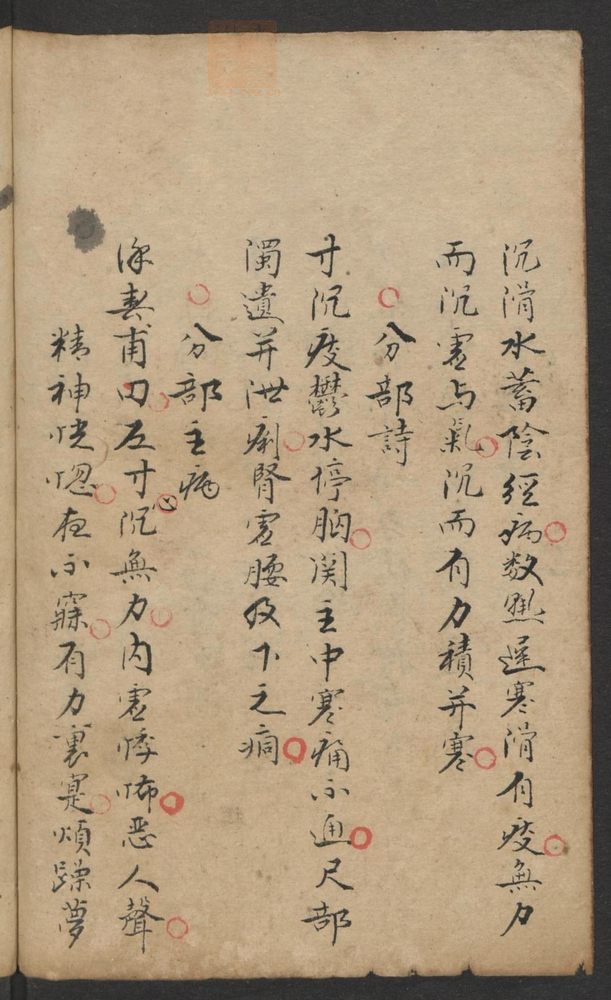 沉滑水蓄陰經病数熱遲寒滑有痰無力
而沉虛与氣沉而有力積并寒
分部詩
寸沉痰鬱水停胸関主中寒痛不通尺部
濁遺并泄痢腎虛腰及下之痌
分部主病
徐春甫曰左寸沉無力内虛悸怖恶人聲
精神恍惚夜不寐有力裏寔煩躁夢